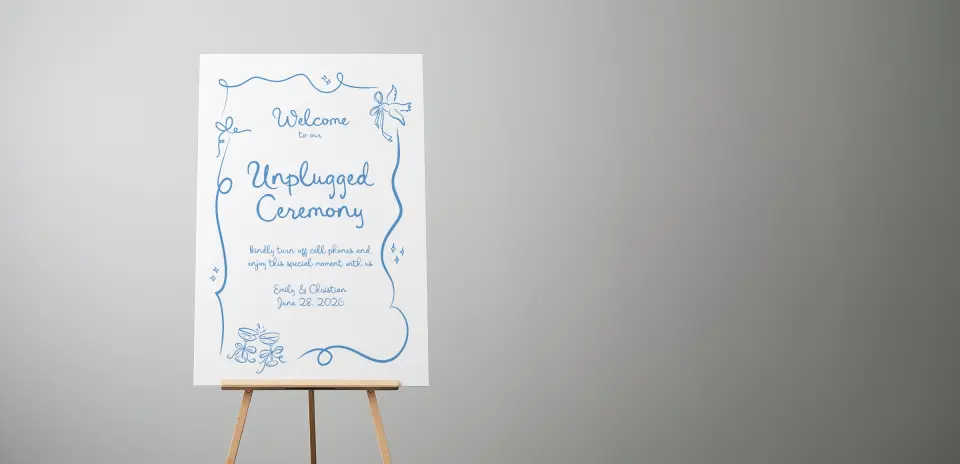 Welcome
to our
Unplugged
Ceremony
kindly turn off cell phones and
enjoy this special moment with us
Emily & Christian
June 28. 2026